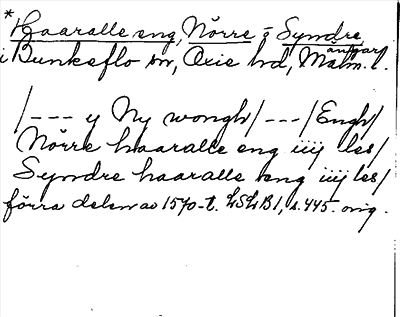 * Haaralle eng, Nörre = Syndre,
i Bunkeflo sn, Oxie hd, Malm. l.
/--- y Ny wongh/---/Engh/
Nörre haaralle eng iiij les/
Syndre haaralle eng iiij les/
förra delen av 1570-t. LSLB1, s. 445. orig.